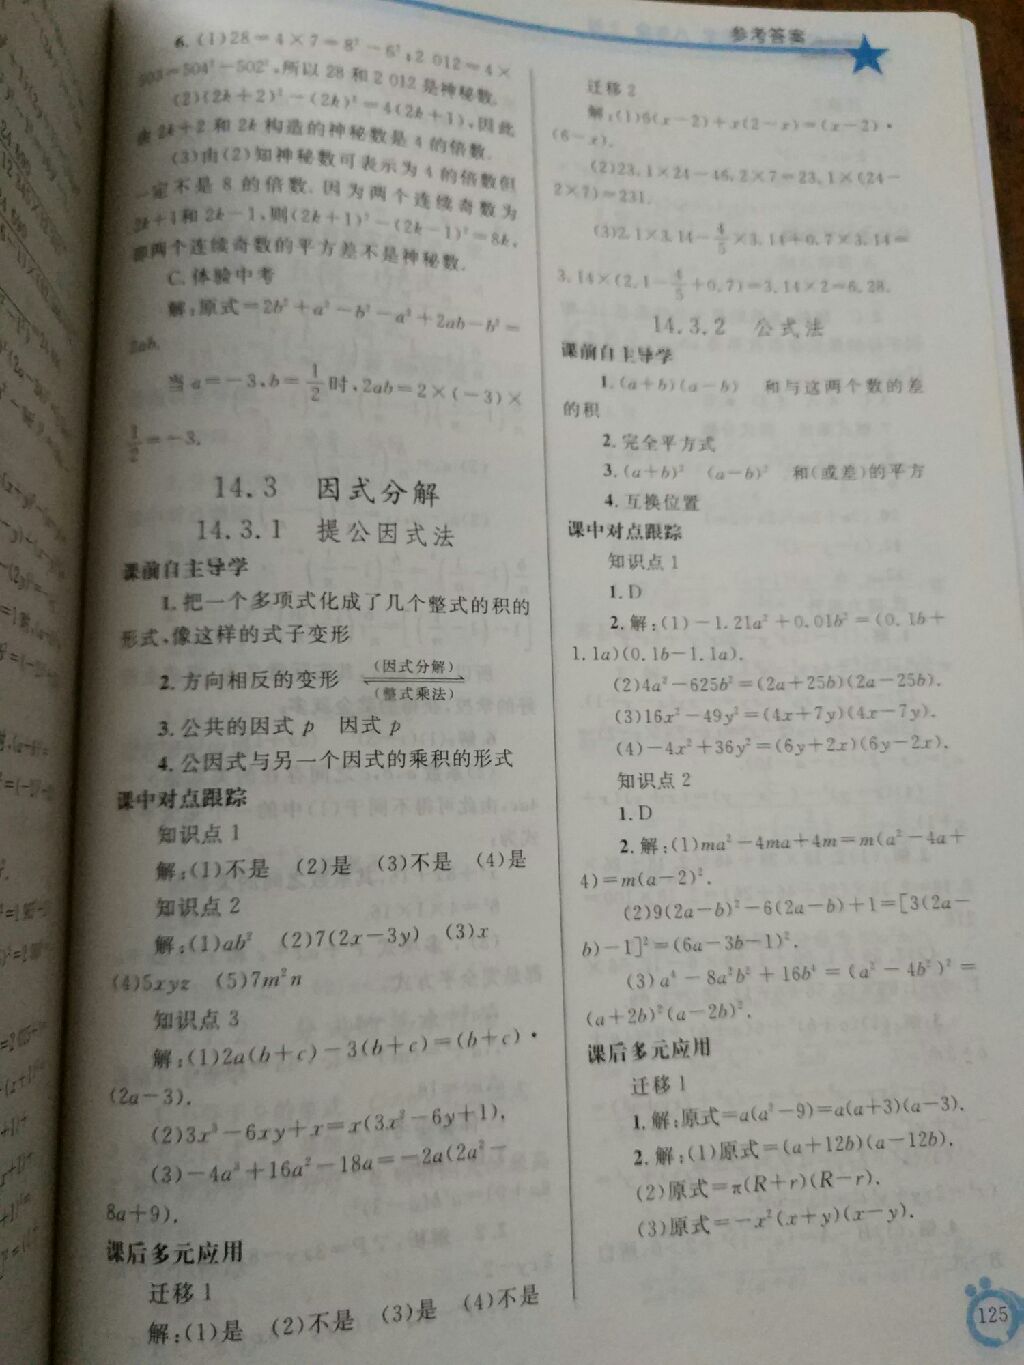 参考答案
6.(1)28=4×7=8²-6²;2 012=4×
503=504²-502²,所以 28 和 2 012 是神秘数.
(2)(2k+2)²-(2k)²=4(2k+1),因此
由 2k+2 和 2k 构造的神秘数是 4 的倍数.
(3)由(2)知神秘数可表示为 4 的倍数但
一定不是 8 的倍数.因为两个连续奇数为
2k+1和 2k-1,则(2k+1)²-(2k-1)²=8k,
即两个连续奇数的平方差不是神秘数.
C.体验中考
解:原式=2b²+a²-b²-a²+2ab-b²=
2ab.
当 a=-3,b=1/2 时,2ab=2×(-3)×
1/2=-3.
14.3 因式分解
14.3.1 提公因式法
课前自主导学
1.把一个多项式化成了几个整式的积的
形式,像这样的式子变形
2.方向相反的变形 (因式分解) (整式乘法)
3.公共的因式 p 因式 p
4.公因式与另一个因式的乘积的形式
课中对点跟踪
知识点 1
解:(1)不是 (2)是 (3)不是 (4)是
知识点 2
解:(1)ab² (2)7(2x-3y) (3)x
(4)5xyz (5)7m²n
知识点 3
解:(1)2a(b+c)-3(b+c)=(b+c)·
(2a-3).
(2)3x³-6xy+x=x(3x²-6y+1).
(3)-4a³+16a²-18a=-2a(2a²-
8a+9).
课后多元应用
迁移 1
解:(1)是 (2)不是 (3)是 (4)不是
迁移 2
解:(1)6(x-2)+x(2-x)=(x-2)·
(6-x).
(2)23.1×24-46.2×7=23.1×(24-
2×7)=231.
(3)2.1×3.14-4/5×3.14+0.7×3.14=
3.14×(2.1-4/5+0.7)=3.14×2=6.28.
14.3.2 公式法
课前自主导学
1.(a+b)(a-b) 和与这两个数的差
的积
2.完全平方式
3.(a+b)² (a-b)² 和(或差)的平方
4.互换位置
课中对点跟踪
知识点 1
1.D
2.解:(1)-1.21a²+0.01b²=(0.1b+
1.1a)(0.1b-1.1a).
(2)4a²-625b²=(2a+25b)(2a-25b).
(3)16x²-49y²=(4x+7y)(4x-7y).
(4)-4x²+36y²=(6y+2x)(6y-2x).
知识点 2
1.D
2.解:(1)ma²-4ma+4m=m(a²-4a+
4)=m(a-2)².
(2)9(2a-b)²-6(2a-b)+1=[3(2a-
b)-1]²=(6a-3b-1)².
(3)a⁴-8a²b²+16b⁴=(a²-4b²)²=
(a+2b)²(a-2b)².
课后多元应用
迁移 1
1.解:原式=a(a²-9)=a(a+3)(a-3).
2.解:(1)原式=(a+12b)(a-12b).
(2)原式=π(R+r)(R-r).
(3)原式=-x²(x+y)(x-y).
125